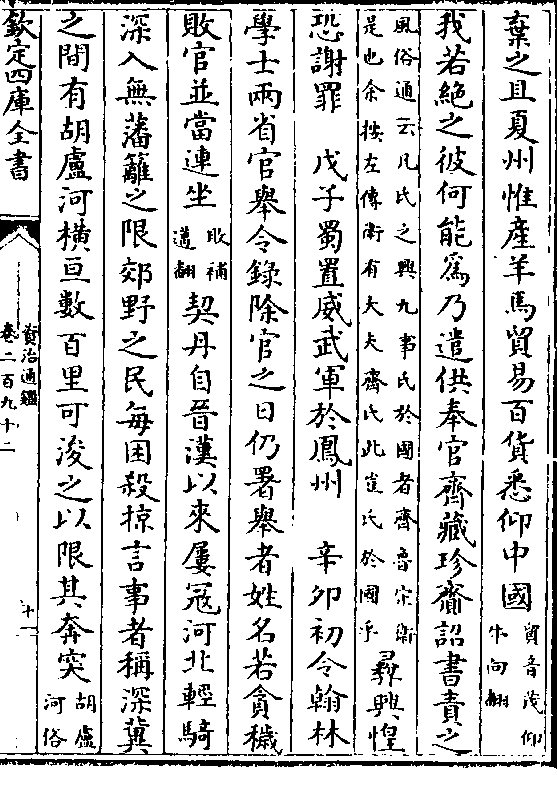 棄之且夏州惟產羊馬貿易百貨悉仰中國貿音茂仰牛向翻
我若絶之彼何能為乃遣供奉官齊藏珍齎詔書責之
風俗通云凡氏之興九事氏於國者齊魯宋衛是也余按左傳衛有大夫齊氏此豈氏於國乎彛興惶
恐謝罪　戊子蜀置威武軍於鳳州　辛卯初令翰林
學士兩省官舉令錄除官之日仍署舉者姓名若貪穢
敗官並當連坐敗補邁翻契丹自晉漢以來屢寇河北輕騎
深入無藩籬之限郊野之民每困殺掠言事者稱深冀
之間有胡盧河横亘數百里可浚之以限其奔突胡盧河俗
欽定四庫全書
資治通鑑
卷二百九十二
十二